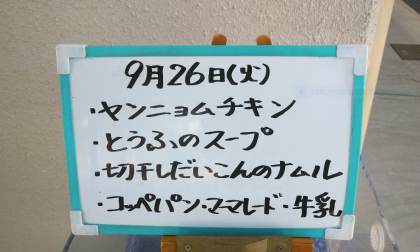 9月26日(火)
・ヤンニョムチキン
・とうふのスープ
・切干しだいこんのナムル
・コッペパン・ママレード・牛乳